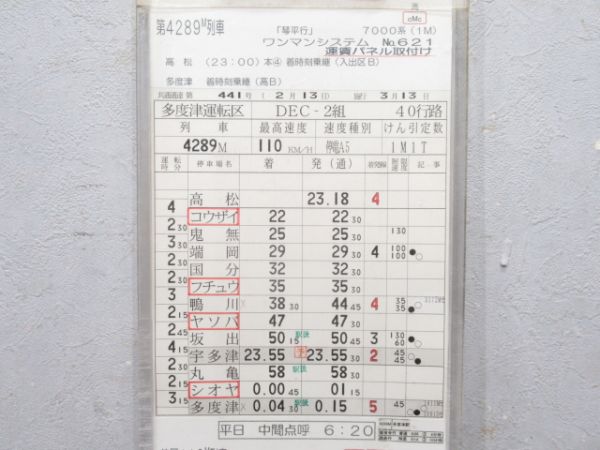 cMc
第4289M列車 「琴平行」 7000系(1M)
ワンマンシステム №621
運賃パネル取付け
高 松 (23:00)本④ 着時刻乗継(入出区B)
多度津 着時刻乗継(高B)
441号 (2月13日) 3月13日
多度津運転区 DEC-2組 40行路
列車 最高速度 速度種別 けん引定数
4289M 110KM/H 停電A5 1M1T
運転時分 停車場名 着 発(通) 着発線 制限速度 記事
高松 23.18 4
4
コウザイ 22 22 30
2 30
鬼無 25 25 30 130
3 30
端岡 29 29 30 4 100 100
2 30
国分 32 32 30
2 30
フチュウ 35 35 30
3
鴨川 38 30 44 45 4 35 35
2 15
ヤソバ 47 47 30
2 45
坂出 50 15 駅後 50 45 3 130 60
4 15
宇多津 23.55 23.55 30 2 45 45
2 30
丸亀 58 駅後 58 30
2 15
シオヤ 0.00 45 01 15
3 15
多度津 0.04 30 駅後 0.15 5 45
平日 中間点呼 6:20